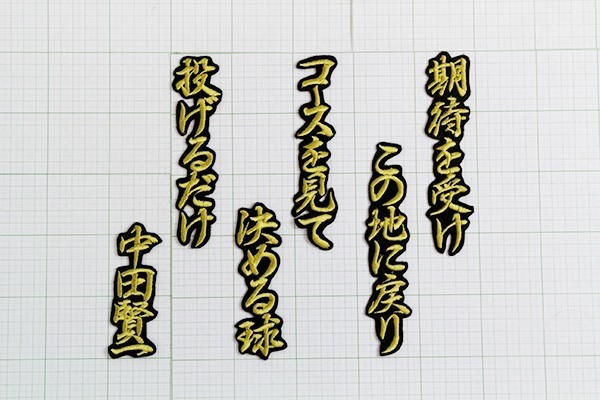 期待を受け
この地に戻り
コースを見て
決める球
投げるだけ
中田賢一